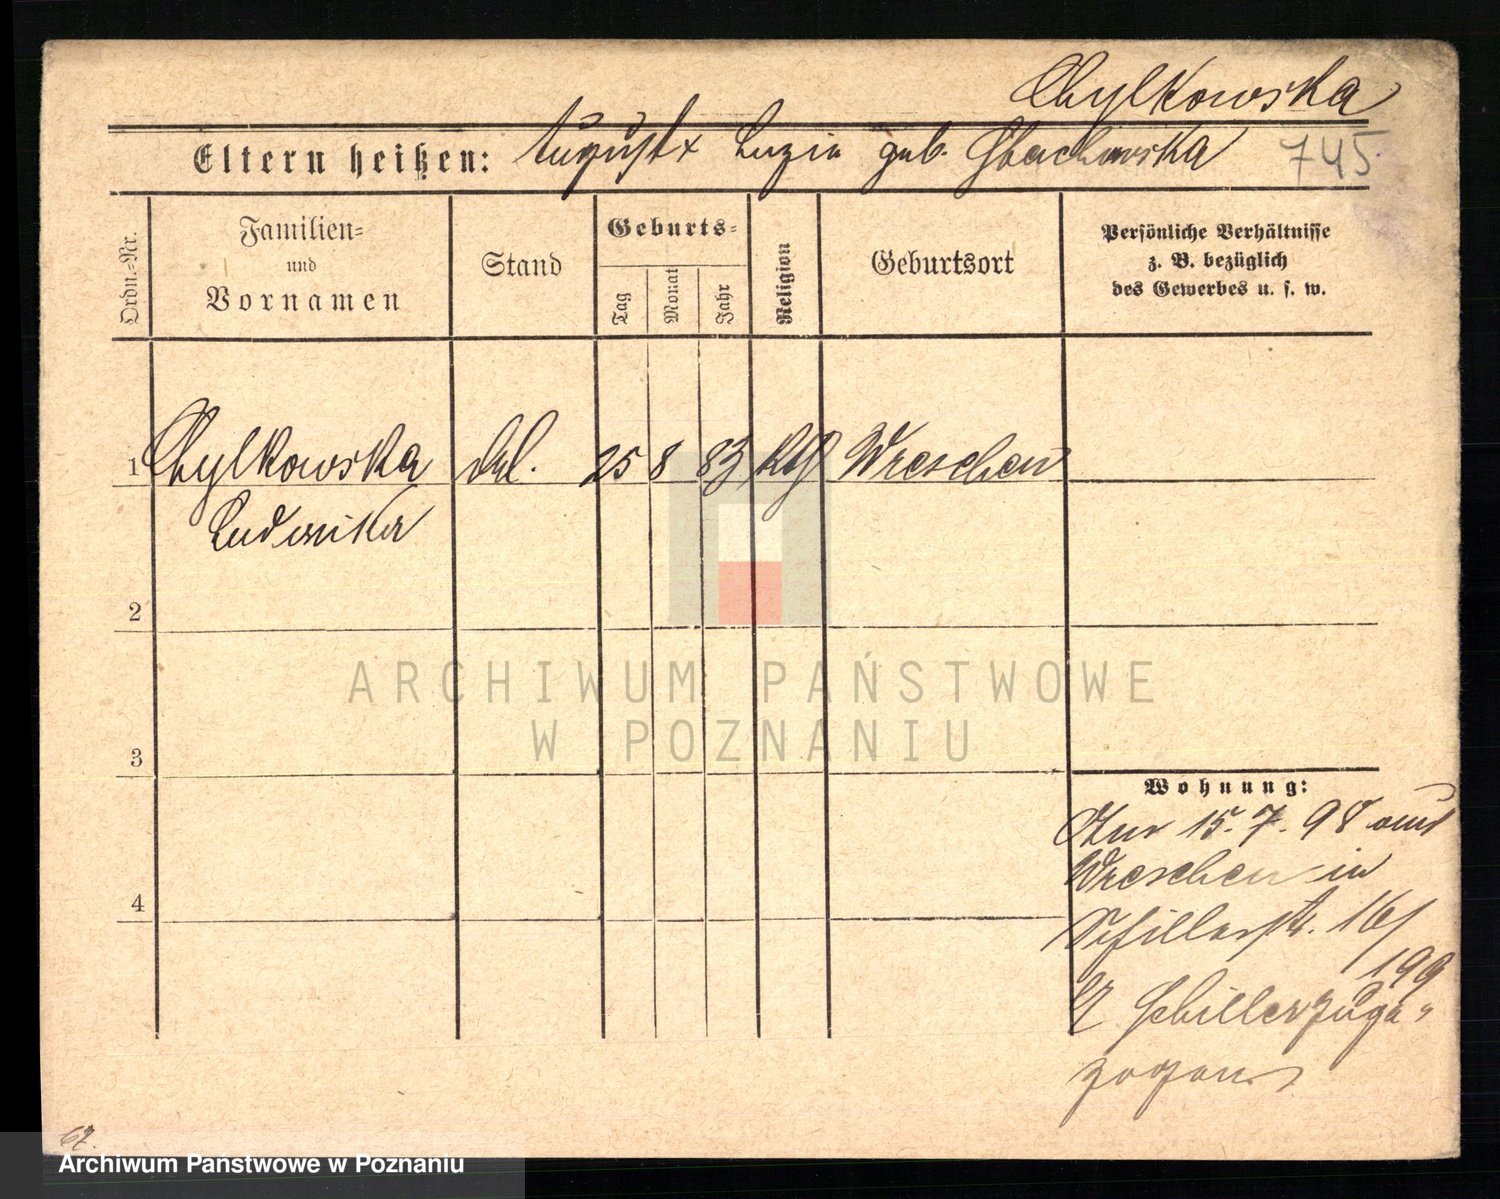 Chylkowska
Eltern heißen: August x Luzia geb. Stachowska 745
Ordn.-Nr.
Familien-
und
Vornamen
Stand
Geburts-
Tag
Monat
Jahr
Religion
Geburtsort
Persönliche Verhältnisse
z. B. bezüglich
des Gewerbes u. s. w.
1 Chylkowska led. 25 8 83 kth Wreschen
Ludwika
2
3
4
Wohnung:
15.7.98 aus
Wreschen in
Schillerstr. 16/
199
Schiller zuge-
zogen
67.
ARCHIWUM PAŃSTWOWE
W POZNANIU
Archiwum Państwowe w Poznaniu